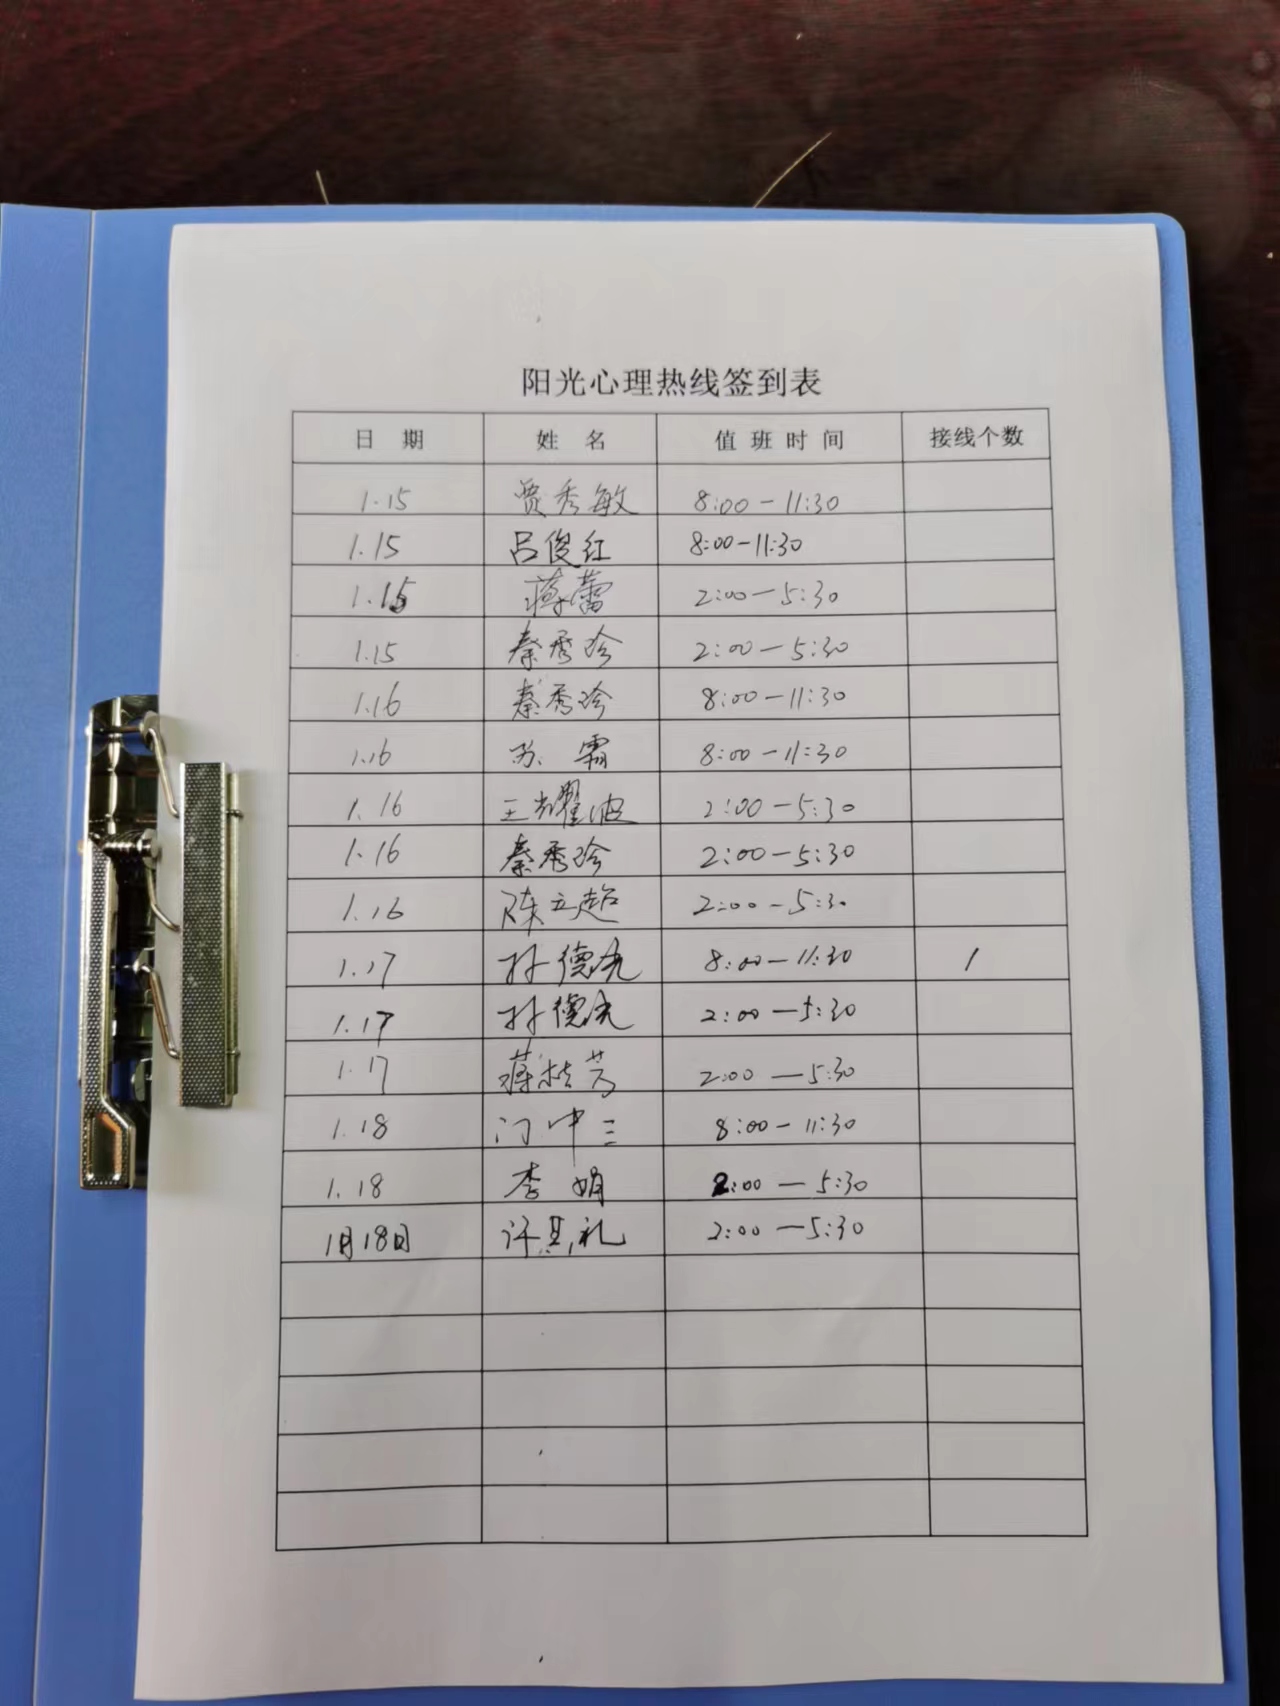 阳光心理热线签到表
日 期 姓 名 值 班 时 间 接线个数
1.15 贾秀敏 8:00-11:30
1.15 吕俊红 8:00-11:30
1.15 蒋蕾 2:00-5:30
1.15 秦秀珍 2:00-5:30
1.16 秦秀珍 8:00-11:30
1.16 苏霜 8:00-11:30
1.16 王耀波 2:00-5:30
1.16 秦秀珍 2:00-5:30
1.16 陈立超 2:00-5:30
1.17 孙德 8:00-11:30 1
1.17 孙德 2:00-5:30
1.17 蒋桂芳 2:00-5:30
1.18 门中三 8:00-11:30
1.18 李娟 2:00-5:30
1月18日 许其礼 2:00-5:30